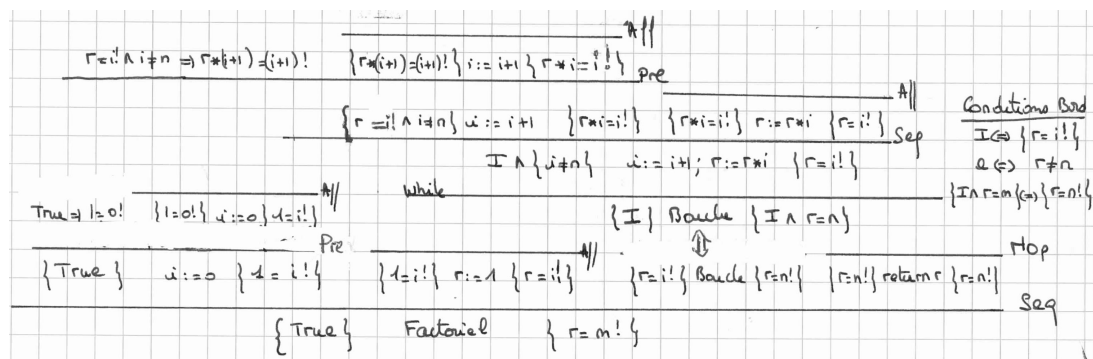 Aff
r=i! ∧ i≠n ⇒ r*(i+1)=(i+1)! {r*(i+1)=(i+1)!} i:=i+1 {r*i=i!}
Pre
Aff
{r=i! ∧ i≠n} i:=i+1 {r*i=i!} {r*i=i!} r:=r*i {r=i!}
Seq
Conditions Bord
I⇔{r=i!}
e⇔ r≠n
{I∧r=n}⇔{r=n!}
I ∧ {i≠n} i:=i+1; r:=r*i {r=i!}
while
Aff
True ⇒ 1=0! {1=0!} i:=0 {1=i!}
{I} Boucle {I ∧ r=n}
⇕
Pre
Aff
Nop
{True} i:=0 {1=i!} {1=i!} r:=1 {r=i!} {r=i!} Boucle {r=n!} {r=n!} return r {r=n!}
Seq
{True} Factoriel {r=n!}